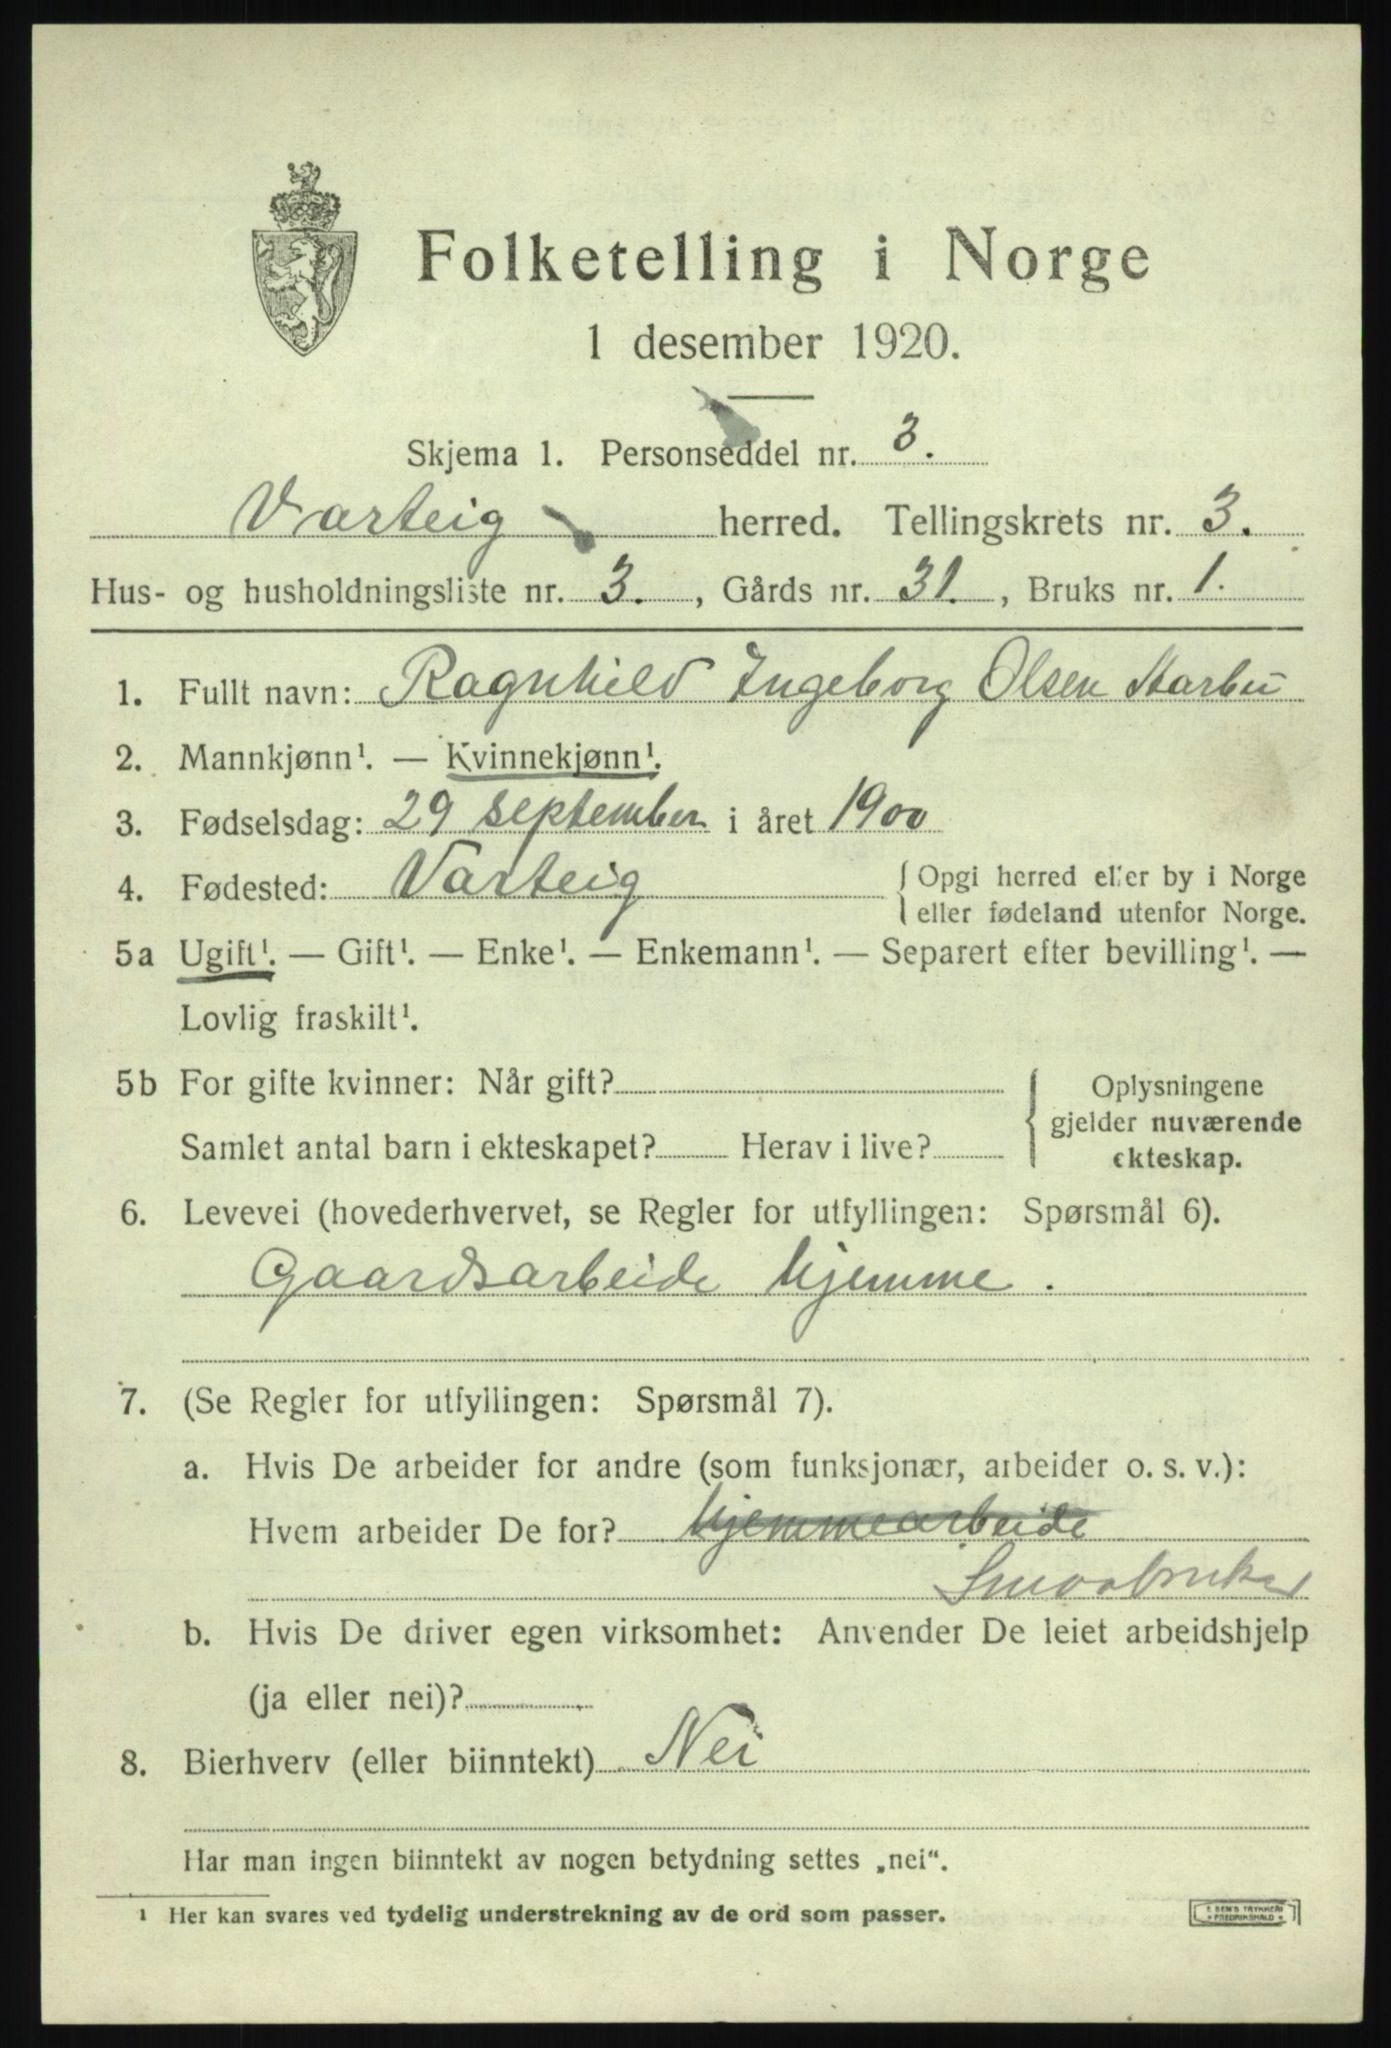 Folketelling i Norge
1 desember 1920.
Skjema 1. Personseddel nr. 3.
Varteig herred. Tellingskrets nr. 3.
Hus- og husholdningsliste nr. 3., Gårds nr. 31., Bruks nr. 1.
1. Fullt navn: Ragnhild Ingeborg Olsen
2. Mannkjønn¹. — Kvinnekjønn¹.
3. Fødselsdag: 29 september i året 1900
4. Fødested: Varteig { Opgi herred eller by i Norge
eller fødeland utenfor Norge.
5a Ugift¹. — Gift¹. — Enke¹. — Enkemann¹. — Separert efter bevilling¹. —
Lovlig fraskilt¹.
5b For gifte kvinner: Når gift?
Samlet antal barn i ekteskapet? Herav i live?
{ Oplysningene
gjelder nuværende
ekteskap.
6. Levevei (hovederhvervet, se Regler for utfyllingen: Spørsmål 6).
Gaardsarbeide hjemme.
7. (Se Regler for utfyllingen: Spørsmål 7).
a. Hvis De arbeider for andre (som funksjonær, arbeider o. s. v.):
Hvem arbeider De for? hjemmearbeide
Smaabruker
b. Hvis De driver egen virksomhet: Anvender De leiet arbeidshjelp
(ja eller nei)?
8. Bierhverv (eller biinntekt) Nei
Har man ingen biinntekt av nogen betydning settes „nei“.
¹ Her kan svares ved tydelig understrekning av de ord som passer.